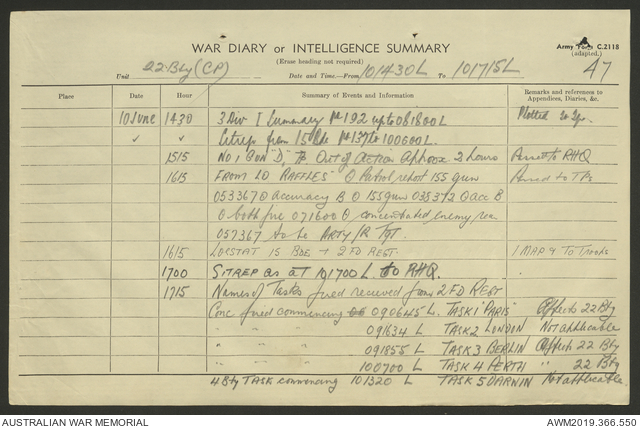 WAR DIARY or INTELLIGENCE SUMMARY
Army Form C.2118
(Erase heading not required)
(adapted.)
Unit 22 Bty (CP) Date and Time.—From 101430L To 101715L 47
Place Date Hour Summary of Events and Information Remarks and references to Appendices, Diaries, &c.
10 June 1430 3 Div I Summary № 192 up to 081800L Plotted
✓ ✓ Sitreps from 15 Bde № 137 to 100600L.
1515 No 1 Gun "D" Out of action approx 2 hours Passed to RHQ
1615 FROM LO RAFFLES O Patrol report 155 gun Passed to
053367 O accuracy B O 155 gun 035372 O acc B
O both fire 071600 O concentrated enemy
057367 to be ARTY/R TGT
1615 LOCSTAT 15 BDE + 2 FD REGT. 1 MAP 4 To Troops
1700 SITREP as at 101700 L to RHQ.
1715 Names of Tasks fired received from 2 FD REGT
Conc fired commencing 090645 L. TASK 1 "PARIS" Affects 22 Bty
" " 091634 L TASK 2 LONDON Not applicable
" " 091855 L TASK 3 BERLIN Affects 22 Bty
" " 100700 L TASK 4 PERTH " 22 Bty
4 Bty TASK commencing 101320 L TASK 5 DARWIN Not applicable.
AUSTRALIAN WAR MEMORIAL AWM2019.366.550